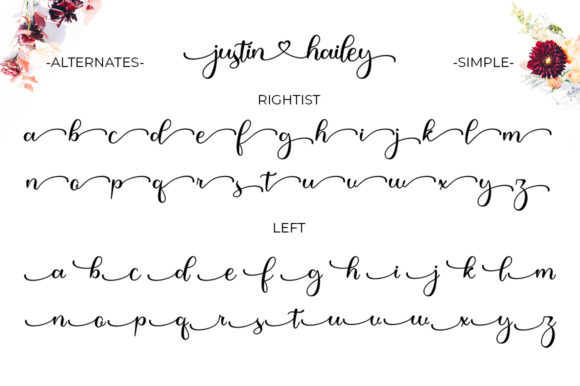 justin hailey
-ALTERNATES-
-SIMPLE-
RIGHTIST
a b c d e f g h i j k l m
n o p q r s t u v w x y z
LEFT
a b c d e f g h i j k l m
n o p q r s t u v w x y z